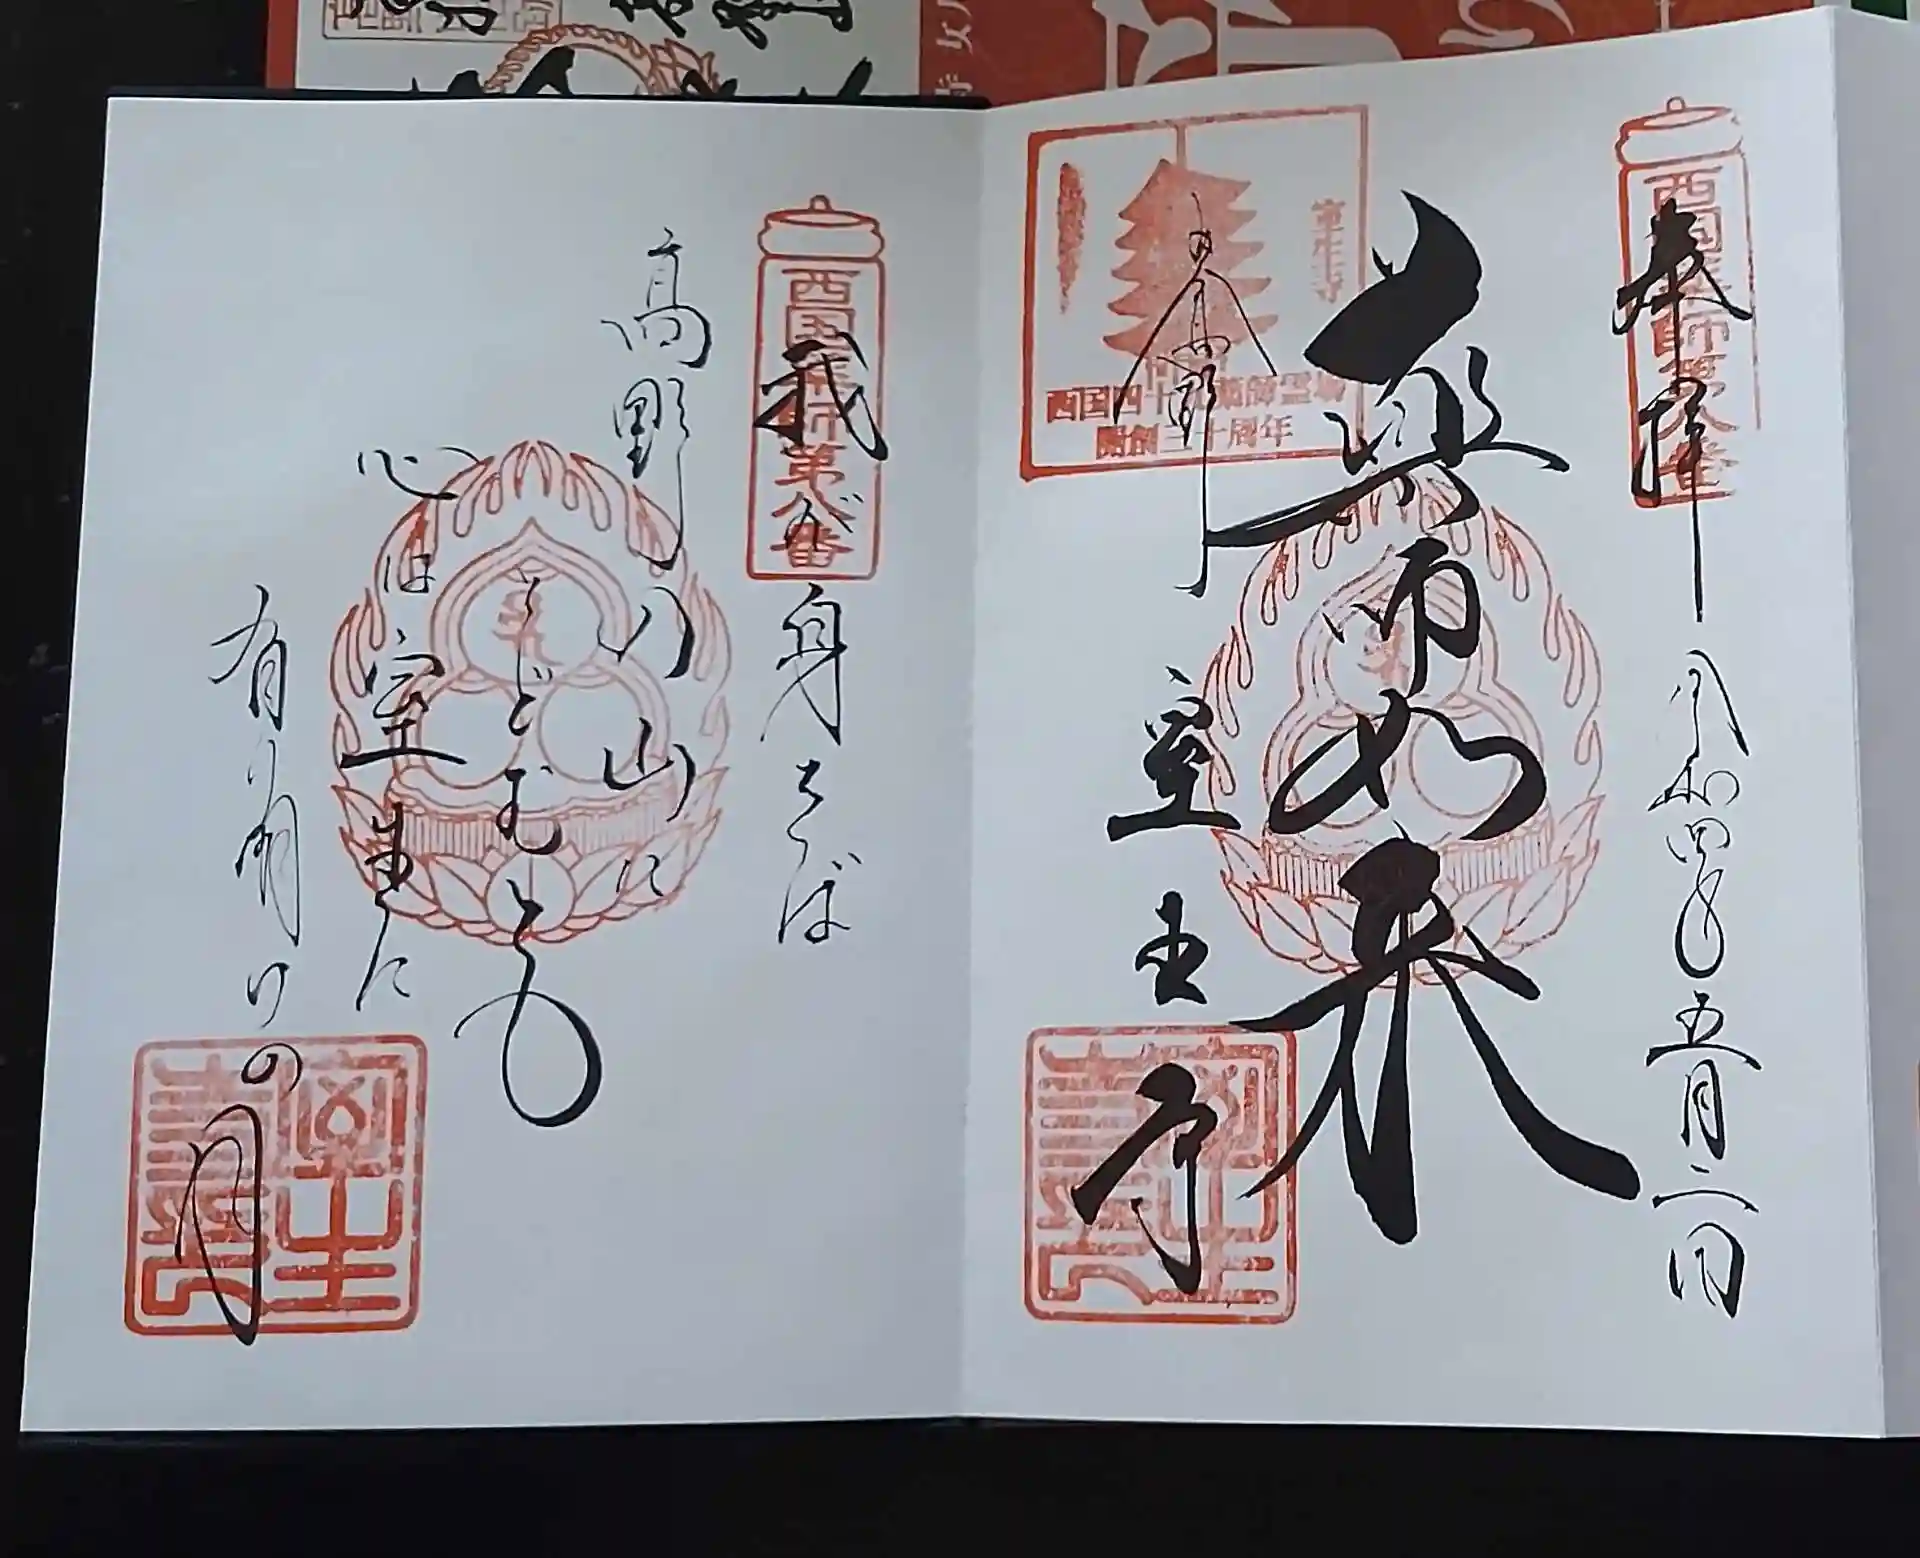 奉拝
令和四年五月二日
西国薬師第八番
薬師如来
女人高野
室生寺
室生寺
西国四十九薬師霊場
開創三十周年
西国薬師第八番
我が身をば
高野の山に
とどむとも
心は室生に
有明けの月